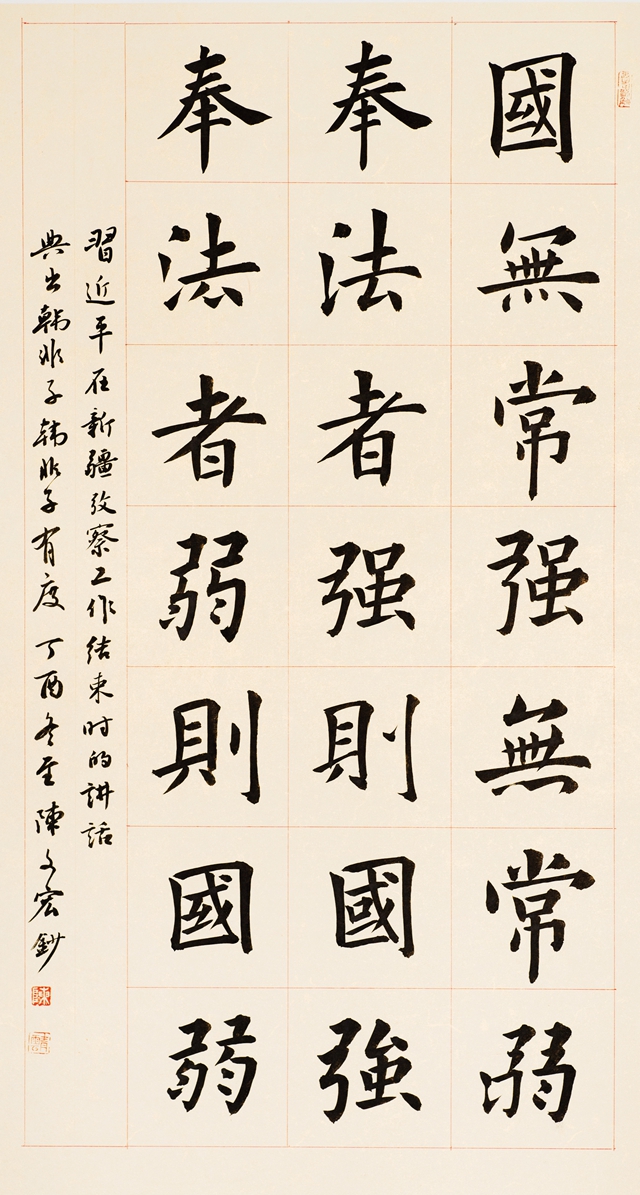 國無常强無常弱
奉法者强則國強
奉法者弱則國弱
習近平在新疆考察工作结束时的讲话
典出韩非子韩非子有度丁酉冬至陳文宏鈔